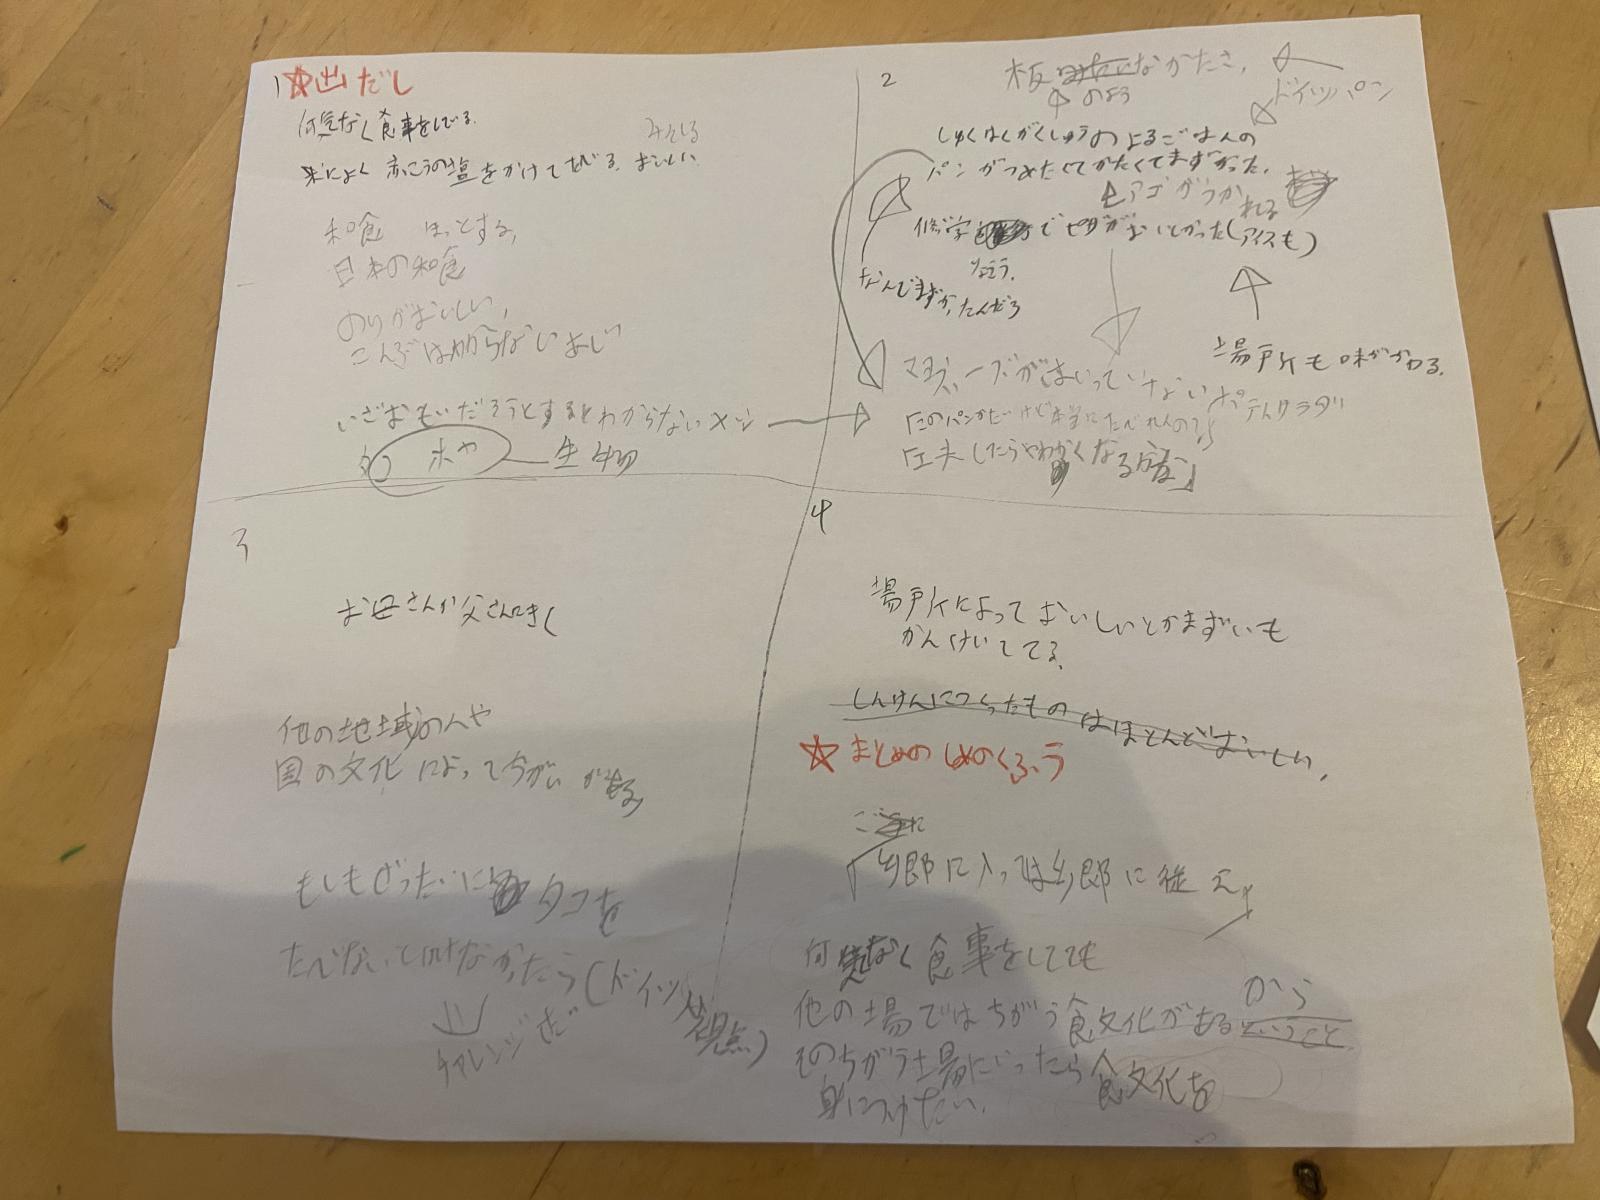 1 ☆出だし
何気なく食事をしてる。
みそしる
米によく赤こうの塩をかけてたべる。おいしい
和食 ほっとする。
日本の和食
のりがおいしい、
こんぶは分からないあじ
いざおもいだそうとするとわからない
ホヤ 生物
2
木板みたいなかたさ。
のよう
ドイツパン
しゅくはくがくしゅうのよるごはんの
パンがつめたくてかたくてまずかった。
アゴがつかれる
修学りょこうでピザがおいしかった(アイスも)
なんでまずかったんだろ
場所も味がかわる。
マヨネーズがはいっていないポテトサラダ
「このパンかたいけど本当にたべれんの?」
「工夫したらやわかくなる
3
お母さんか父さんにきく
他の地域の人や
国の文化によってちがいがある
もしもぜったいにタコを
たべないといけなかったら(ドイツ人視点)
チャレンジだ
4
場所によっておいしいとかまずいも
かんけいしてる。
しんけんにつくったものはほとんどおいしい。
☆まとめのしめのくふう
「郷に入っては郷に従え」
何気なく食事をしてても
他の場ではちがう食文化があるということ
から
そのちがう場にいったら食文化を
身につけたい。